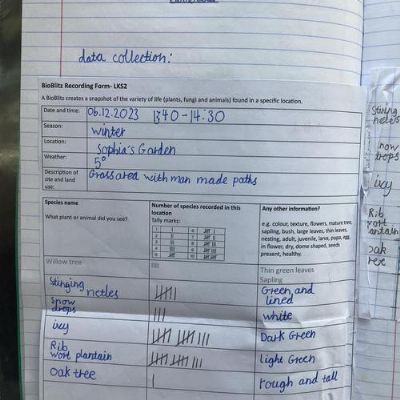 data collection:
BioBlitz Recording Form- LKS2
A BioBlitz creates a snapshot of the variety of life (plants, fungi and animals) found in a specific location.
Date and time: 06.12.2023 1340-14:30
Season: Winter
Location: Sophia's Garden
Weather: 5°
Description of site and land use: Grass area with man made paths
Species name
What plant or animal did you see?
Number of species recorded in this location
Tally marks:
Any other information?
e.g. colour, texture, flowers, mature tree, sapling, bush, large leaves, thin leaves, nesting, adult, juvenile, larva, pupa, egg in flower, dry, dome shaped, seeds present, healthy.
Willow tree
Thin green leaves
Sapling
Stinging netles
Green and lined
Snow drops
white
ivy
Dark Green
Rib wort plantain
Light Green
Oak tree
rough and tall
Stinging
netles
now
drops
ivy
Rib
wort
lantain
oak
ree